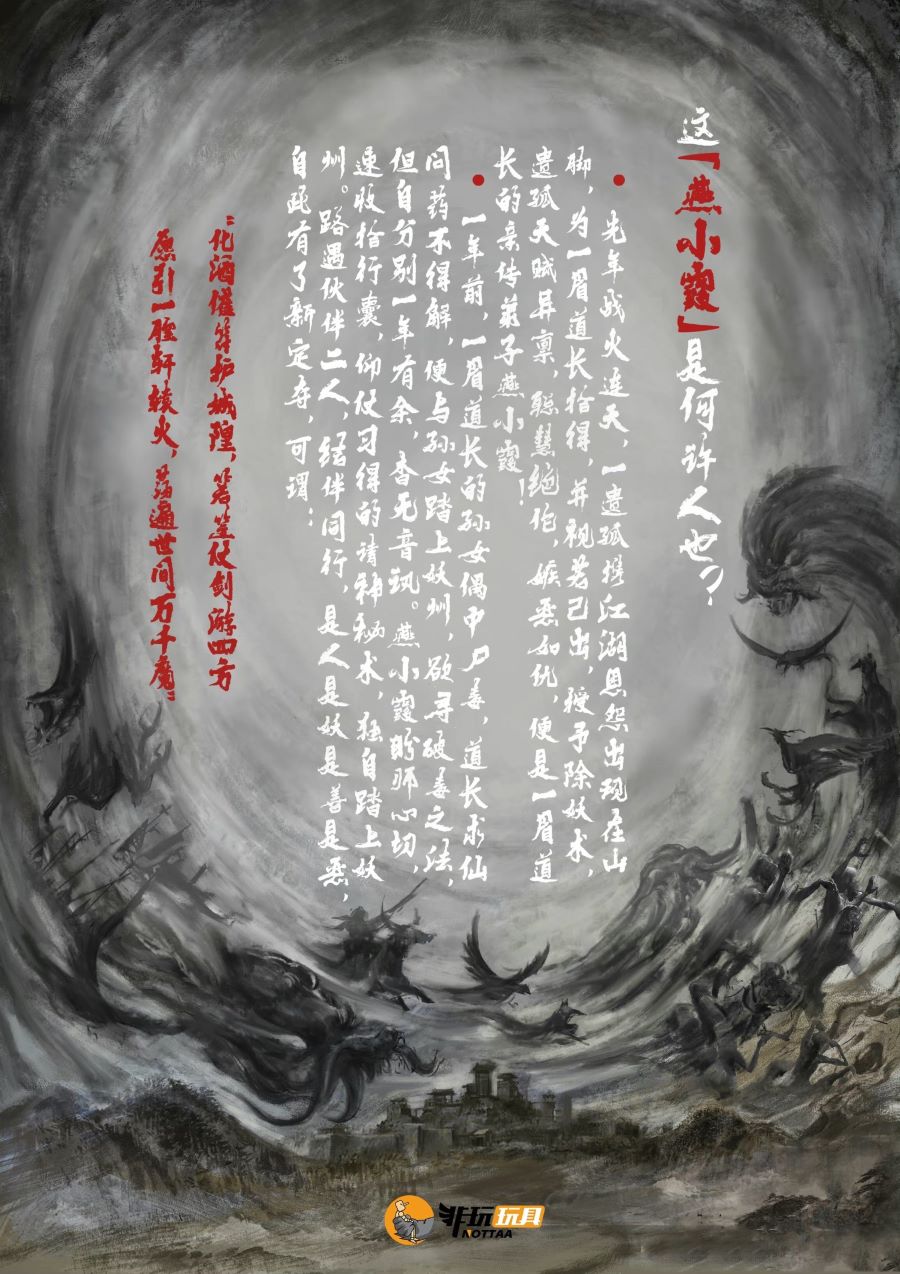 这「燕小霞」是何许人也?
• 先年战火连天,一遗孤携江湖恩怨出现在山
脚,为一眉道长拾得,并视若己出,授予除妖术,
遗孤天赋异禀,聪慧绝伦,嫉恶如仇,便是一眉道
长的亲传弟子燕小霞!
• 一年前,一眉道长的孙女偶中尸毒,道长求仙
问药不得解,便与孙女踏上妖州,欲寻破毒之法,
但自分别一年有余,杳无音讯。燕小霞盼师心切,
速收拾行囊,仰仗习得的请神秘术,独自踏上妖
州。路遇伙伴二人,结伴同行,是人是妖是善是恶,
自有了新定夺,可谓:
"化酒催符护城隍,箬笠仗剑游四方
愿引一腔轩辕火,荡遍世间万千魔"
非玩玩具
NOTTAA